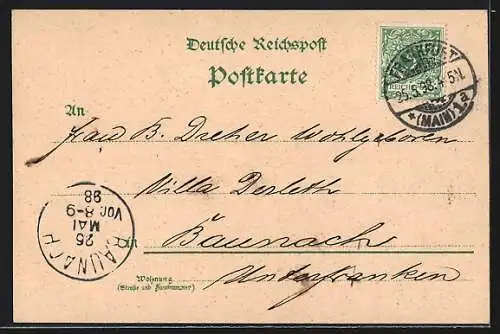 Deutsche Reichspost
Postkarte
FRANKFURT
25.5.98. 4-5N.
* (MAIN) 1 a
An
Frau B. Dreher Wohlgeboren
Villa Derleth
in Baunach
Unterfranken
BAUNACH
25
MAI
VOR. 8-9
98
Wohnung
(Straße und Hausnummer)